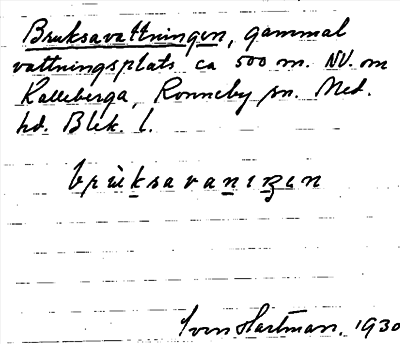 Bruksavattningen, gammal
vattningsplats ca 500 m. NV. om
Kalleberga, Ronneby sn. Med.
hd. Blek. l.
Iven Hartman, 1930